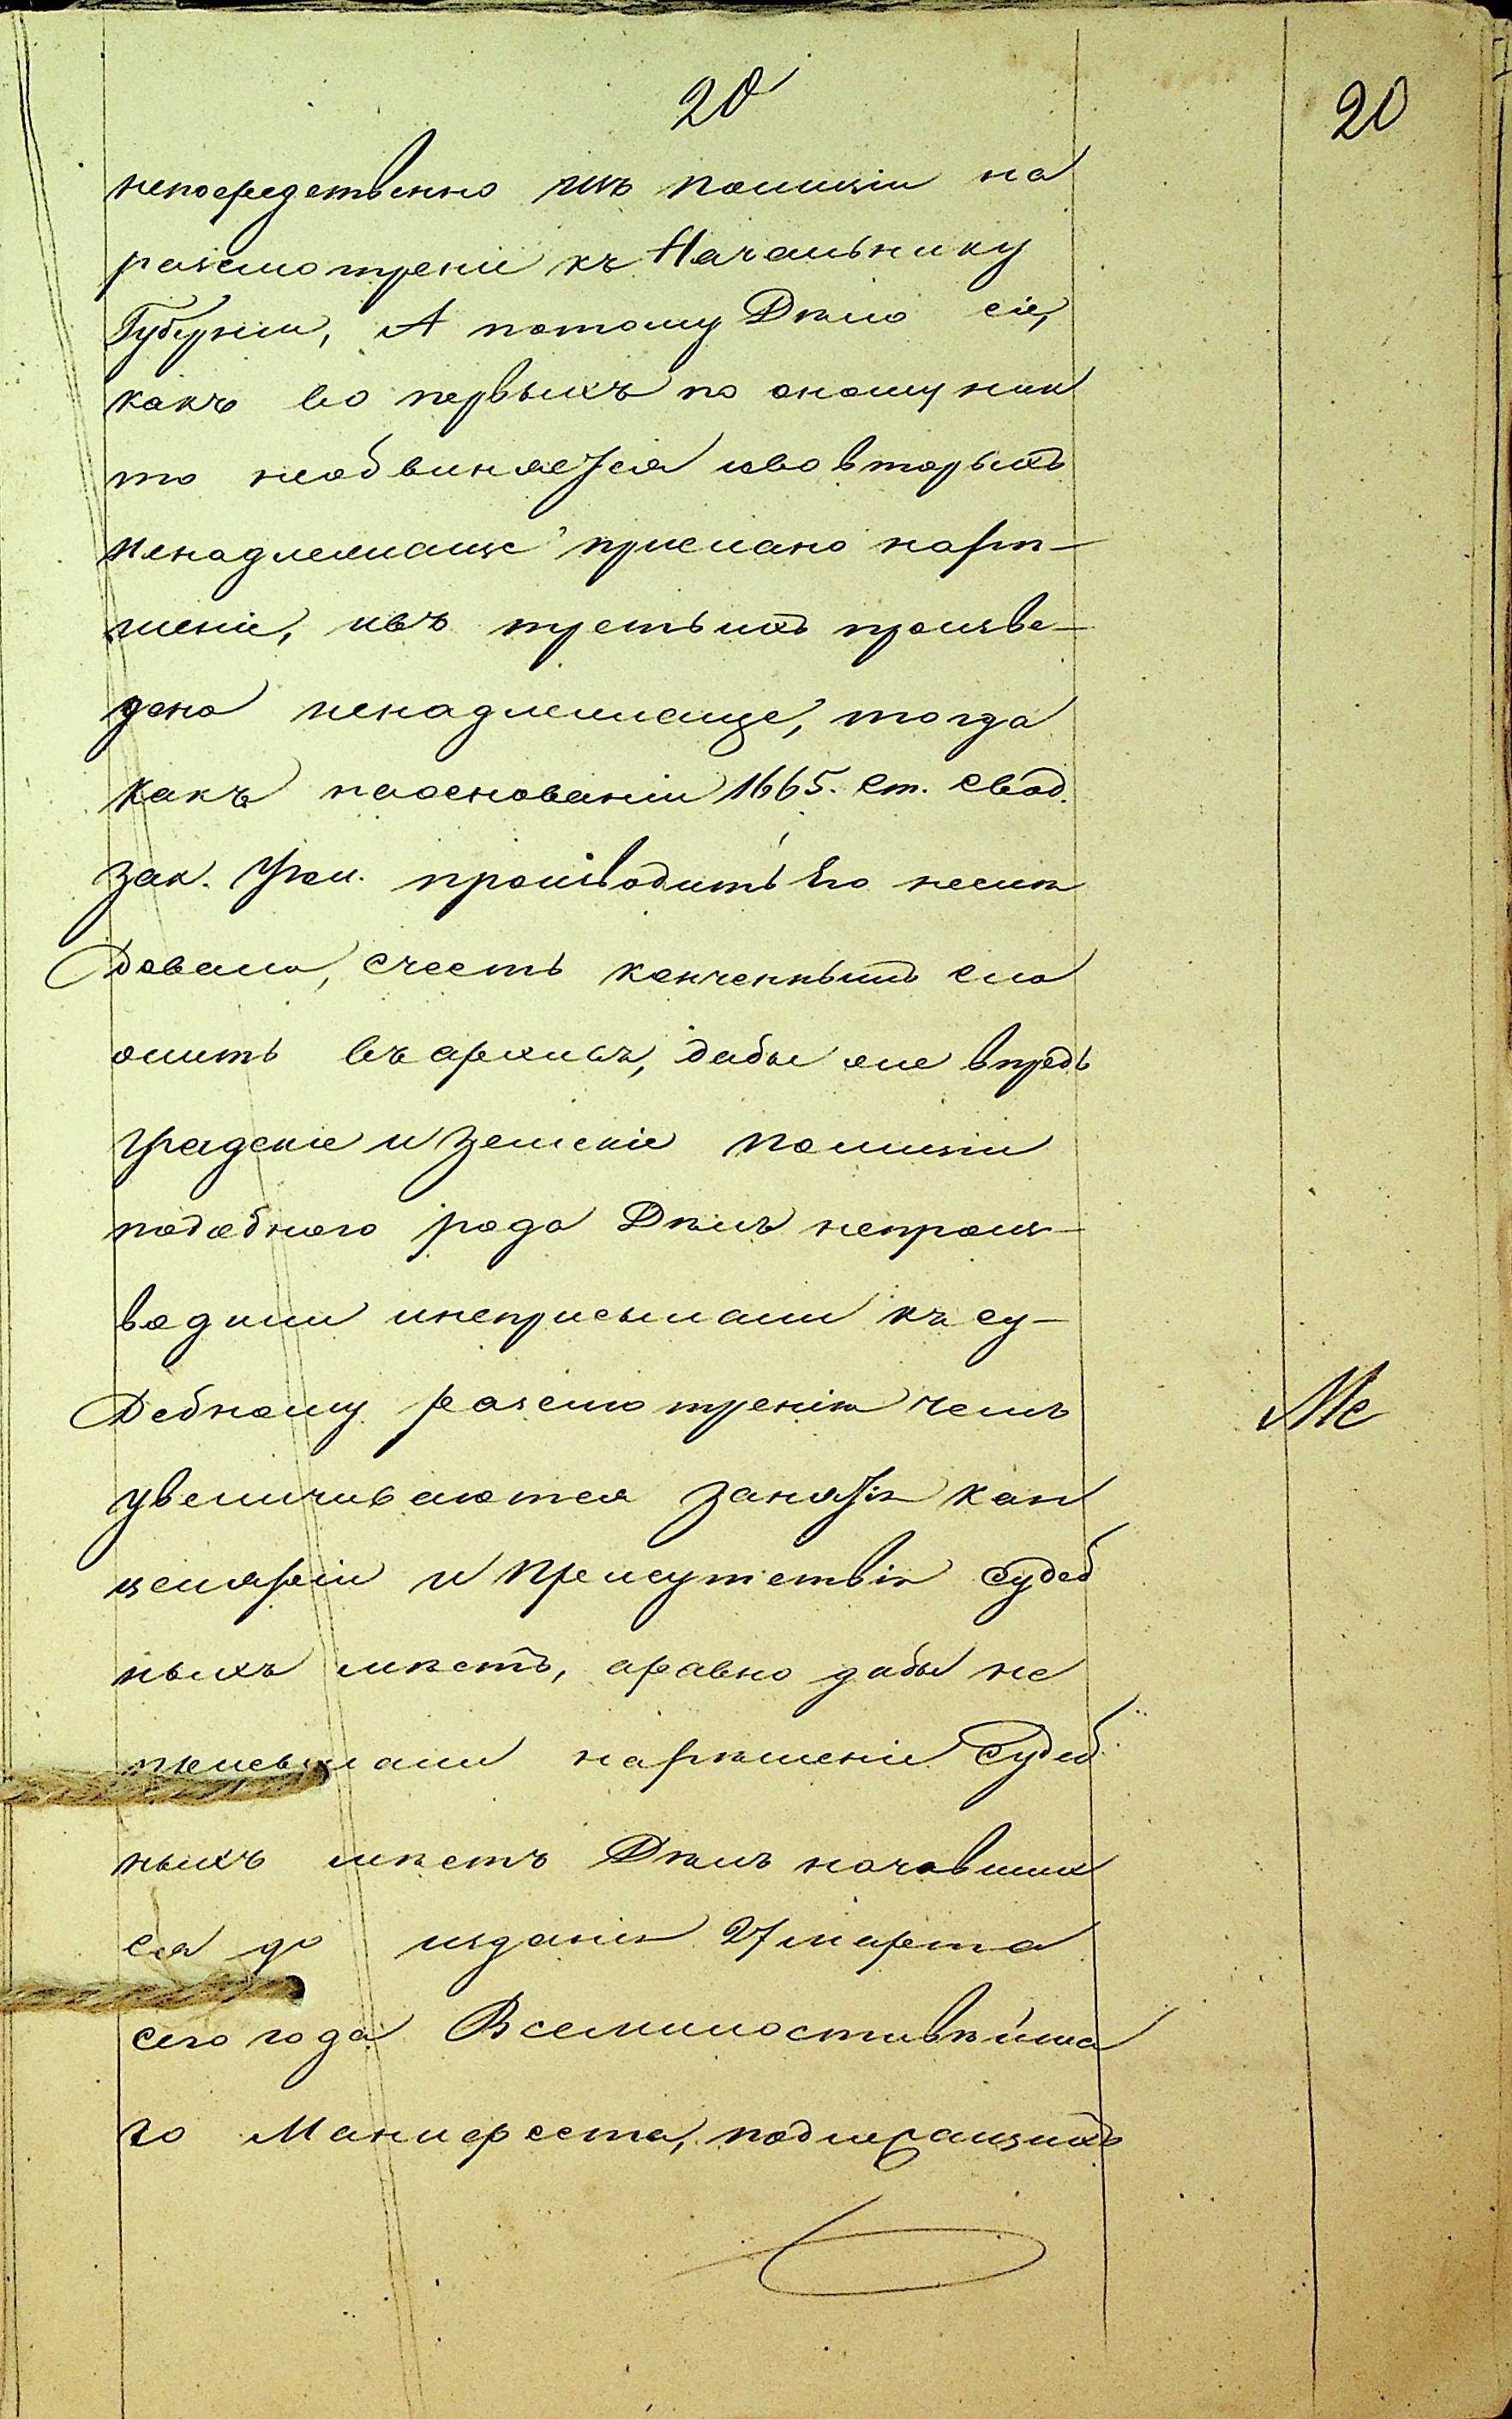 20
20
непосредственно изъ полиціи на
разсмотреніе къ Начальнику
Губерніи, А потому Дѣло сіе,
какъ во первыхъ по оному ник
то необвиняется иво вторыхъ
Ненадлежаще прислано нарѣ-
шеніе, ивъ третьихъ произве-
дено ненадлежаще, тогда
какъ наоснованіи 1665. Ст. Свод.
Зак. Угол. производить Его неслѣ
Довало, счесть конченнымъ сло
жить въ архивъ, дабы же впредь
градскіе и Земскіе полиціи
подобнаго рода Дѣлъ непроиз-
водили инеприсылали къ су-
Дебному разсмотренію чемъ
увеличиваются занятія кан
целяріи и Присутствія Судеб
ныхъ мѣстъ, аравно дабы не
присылали нарѣшеніе Судеб
ныхъ мѣстъ Дѣлъ начавших
ся до изданія 27 марта
сего года Всемилостивѣйша
го Манифеста, подлежащихъ